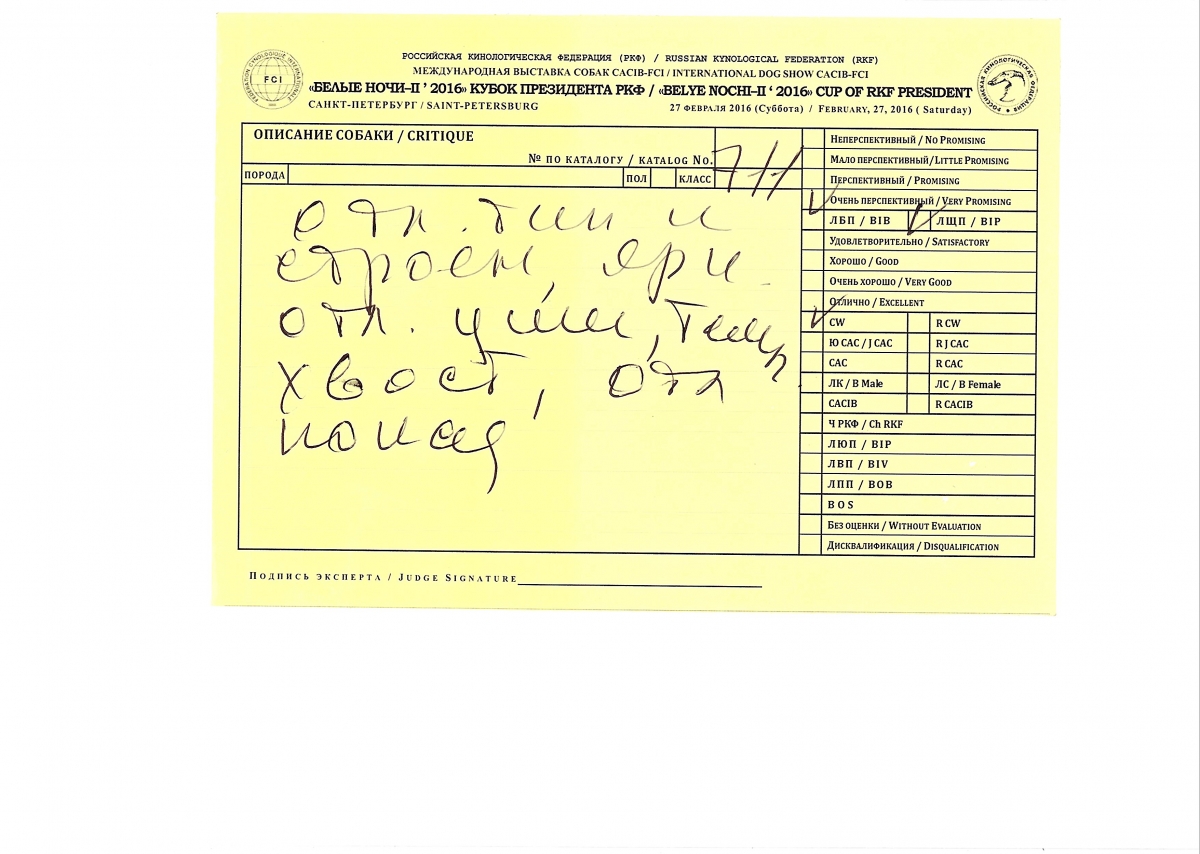 РОССИЙСКАЯ КИНОЛОГИЧЕСКАЯ ФЕДЕРАЦИЯ (РКФ) / RUSSIAN KYNOLOGICAL FEDERATION (RKF)
МЕЖДУНАРОДНАЯ ВЫСТАВКА СОБАК CACIB-FCI / INTERNATIONAL DOG SHOW CACIB-FCI
«БЕЛЫЕ НОЧИ–II ’ 2016» КУБОК ПРЕЗИДЕНТА РКФ / «BELYE NOCHI–II ‘ 2016» CUP OF RKF PRESIDENT
САНКТ-ПЕТЕРБУРГ / SAINT-PETERSBURG 27 ФЕВРАЛЯ 2016 (Суббота) / FEBRUARY, 27, 2016 ( Saturday)
FCI
ОПИСАНИЕ СОБАКИ / CRITIQUE
№ ПО КАТАЛОГУ / KATALOG No. 711
ПОРОДА ПОЛ КЛАСС
отл. тип и
строен,
отл. уши, темп
хвост, отл
Неперспективный / No Promising
Мало перспективный/Little Promising
Перспективный / Promising
Очень перспективный/ Very Promising
ЛБП / BIB ЛЩП / BIP
Удовлетворительно / Satisfactory
Хорошо / Good
Очень хорошо / Very Good
Отлично / Excellent
CW R CW
Ю САС / J CAC R J CAC
CAC R CAC
ЛК / B Male ЛС / B Female
CACIB R CACIB
Ч РКФ / Ch RKF
ЛЮП / BIP
ЛВП / BIV
ЛПП / BOB
BOS
Без оценки / Without Evaluation
Дисквалификация / Disqualification
Подпись эксперта / Judge Signature